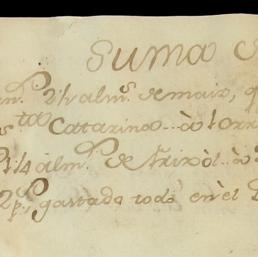 Suma
2½ alms. de mais,
Sta. Catarina .. à 1 or
¼ alm. de frixòl .. à
2 ps. gastada todo en èl